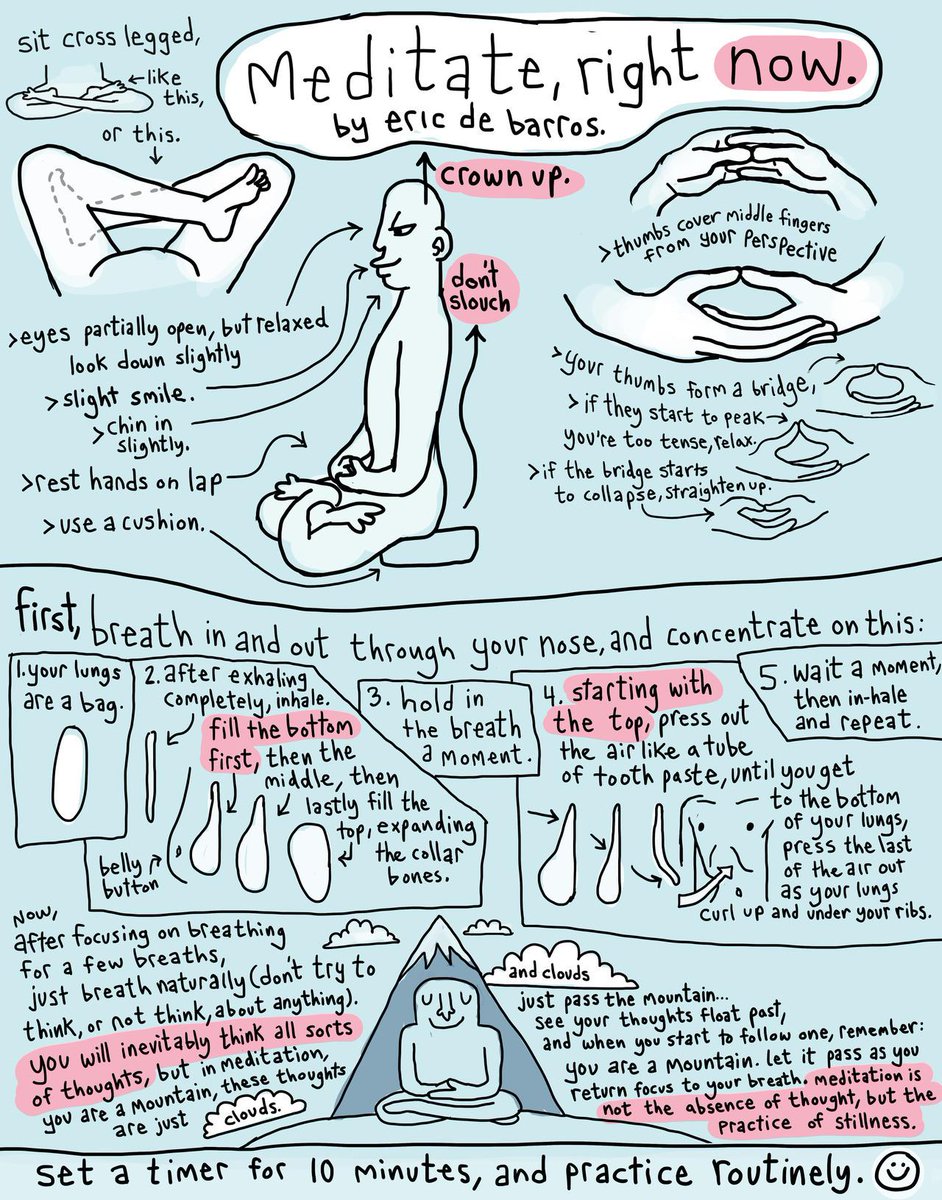 Meditate, right now.
by eric de barros.
sit cross legged,
like
this,
or this.
crown up.
don't
slouch
>eyes partially open, but relaxed
look down slightly
>slight smile.
>chin in
slightly.
>rest hands on lap
>use a cushion.
>thumbs cover middle fingers
from your perspective
>your thumbs form a bridge,
>if they start to peak
you're too tense, relax.
>if the bridge starts
to collapse, straighten up.
first, breath in and out through your nose, and concentrate on this:
1. your lungs
are a bag.
2. after exhaling
completely, inhale.
fill the bottom
first, then the
middle, then
lastly fill the
top, expanding
the collar
bones.
belly
button
3. hold in
the breath
a moment.
4. starting with
the top, press out
the air like a tube
of tooth paste, until you get
to the bottom
of your lungs,
press the last
of the air out
as your lungs
curl up and under your ribs.
5. wait a moment,
then in-hale
and repeat.
Now,
after focusing on breathing
for a few breaths,
just breath naturally (don't try to
think, or not think, about anything).
you will inevitably think all sorts
of thoughts, but in meditation,
you are a mountain, these thoughts
are just
clouds.
and clouds
just pass the mountain...
see your thoughts float past,
and when you start to follow one, remember:
you are a mountain. let it pass as you
return focus to your breath. meditation is
not the absence of thought, but the
practice of stillness.
set a timer for 10 minutes, and practice routinely.